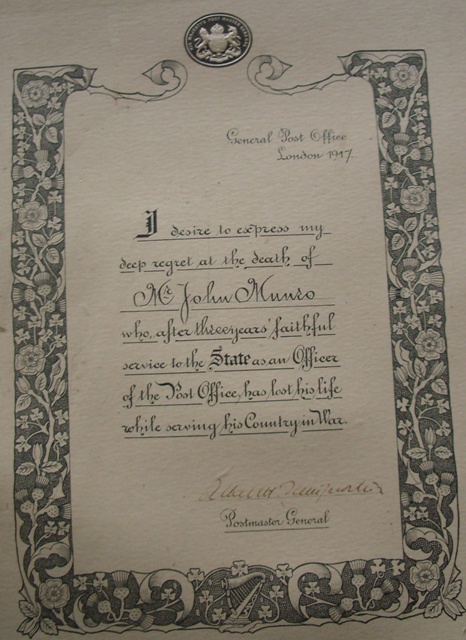 General Post Office
London 1917.
I desire to express my
deep regret at the death of
Mr John Munro
who, after three years' faithful
service to the State as an Officer
of the Post Office, has lost his life
while serving his Country in War.
Postmaster General